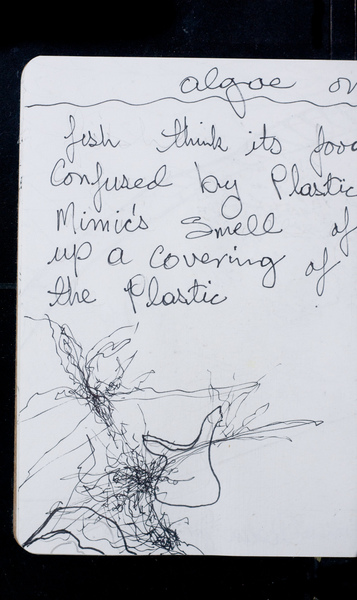 algae on
fish think its food
Confused by Plastic
Mimic's Smell of
up a covering of
the Plastic